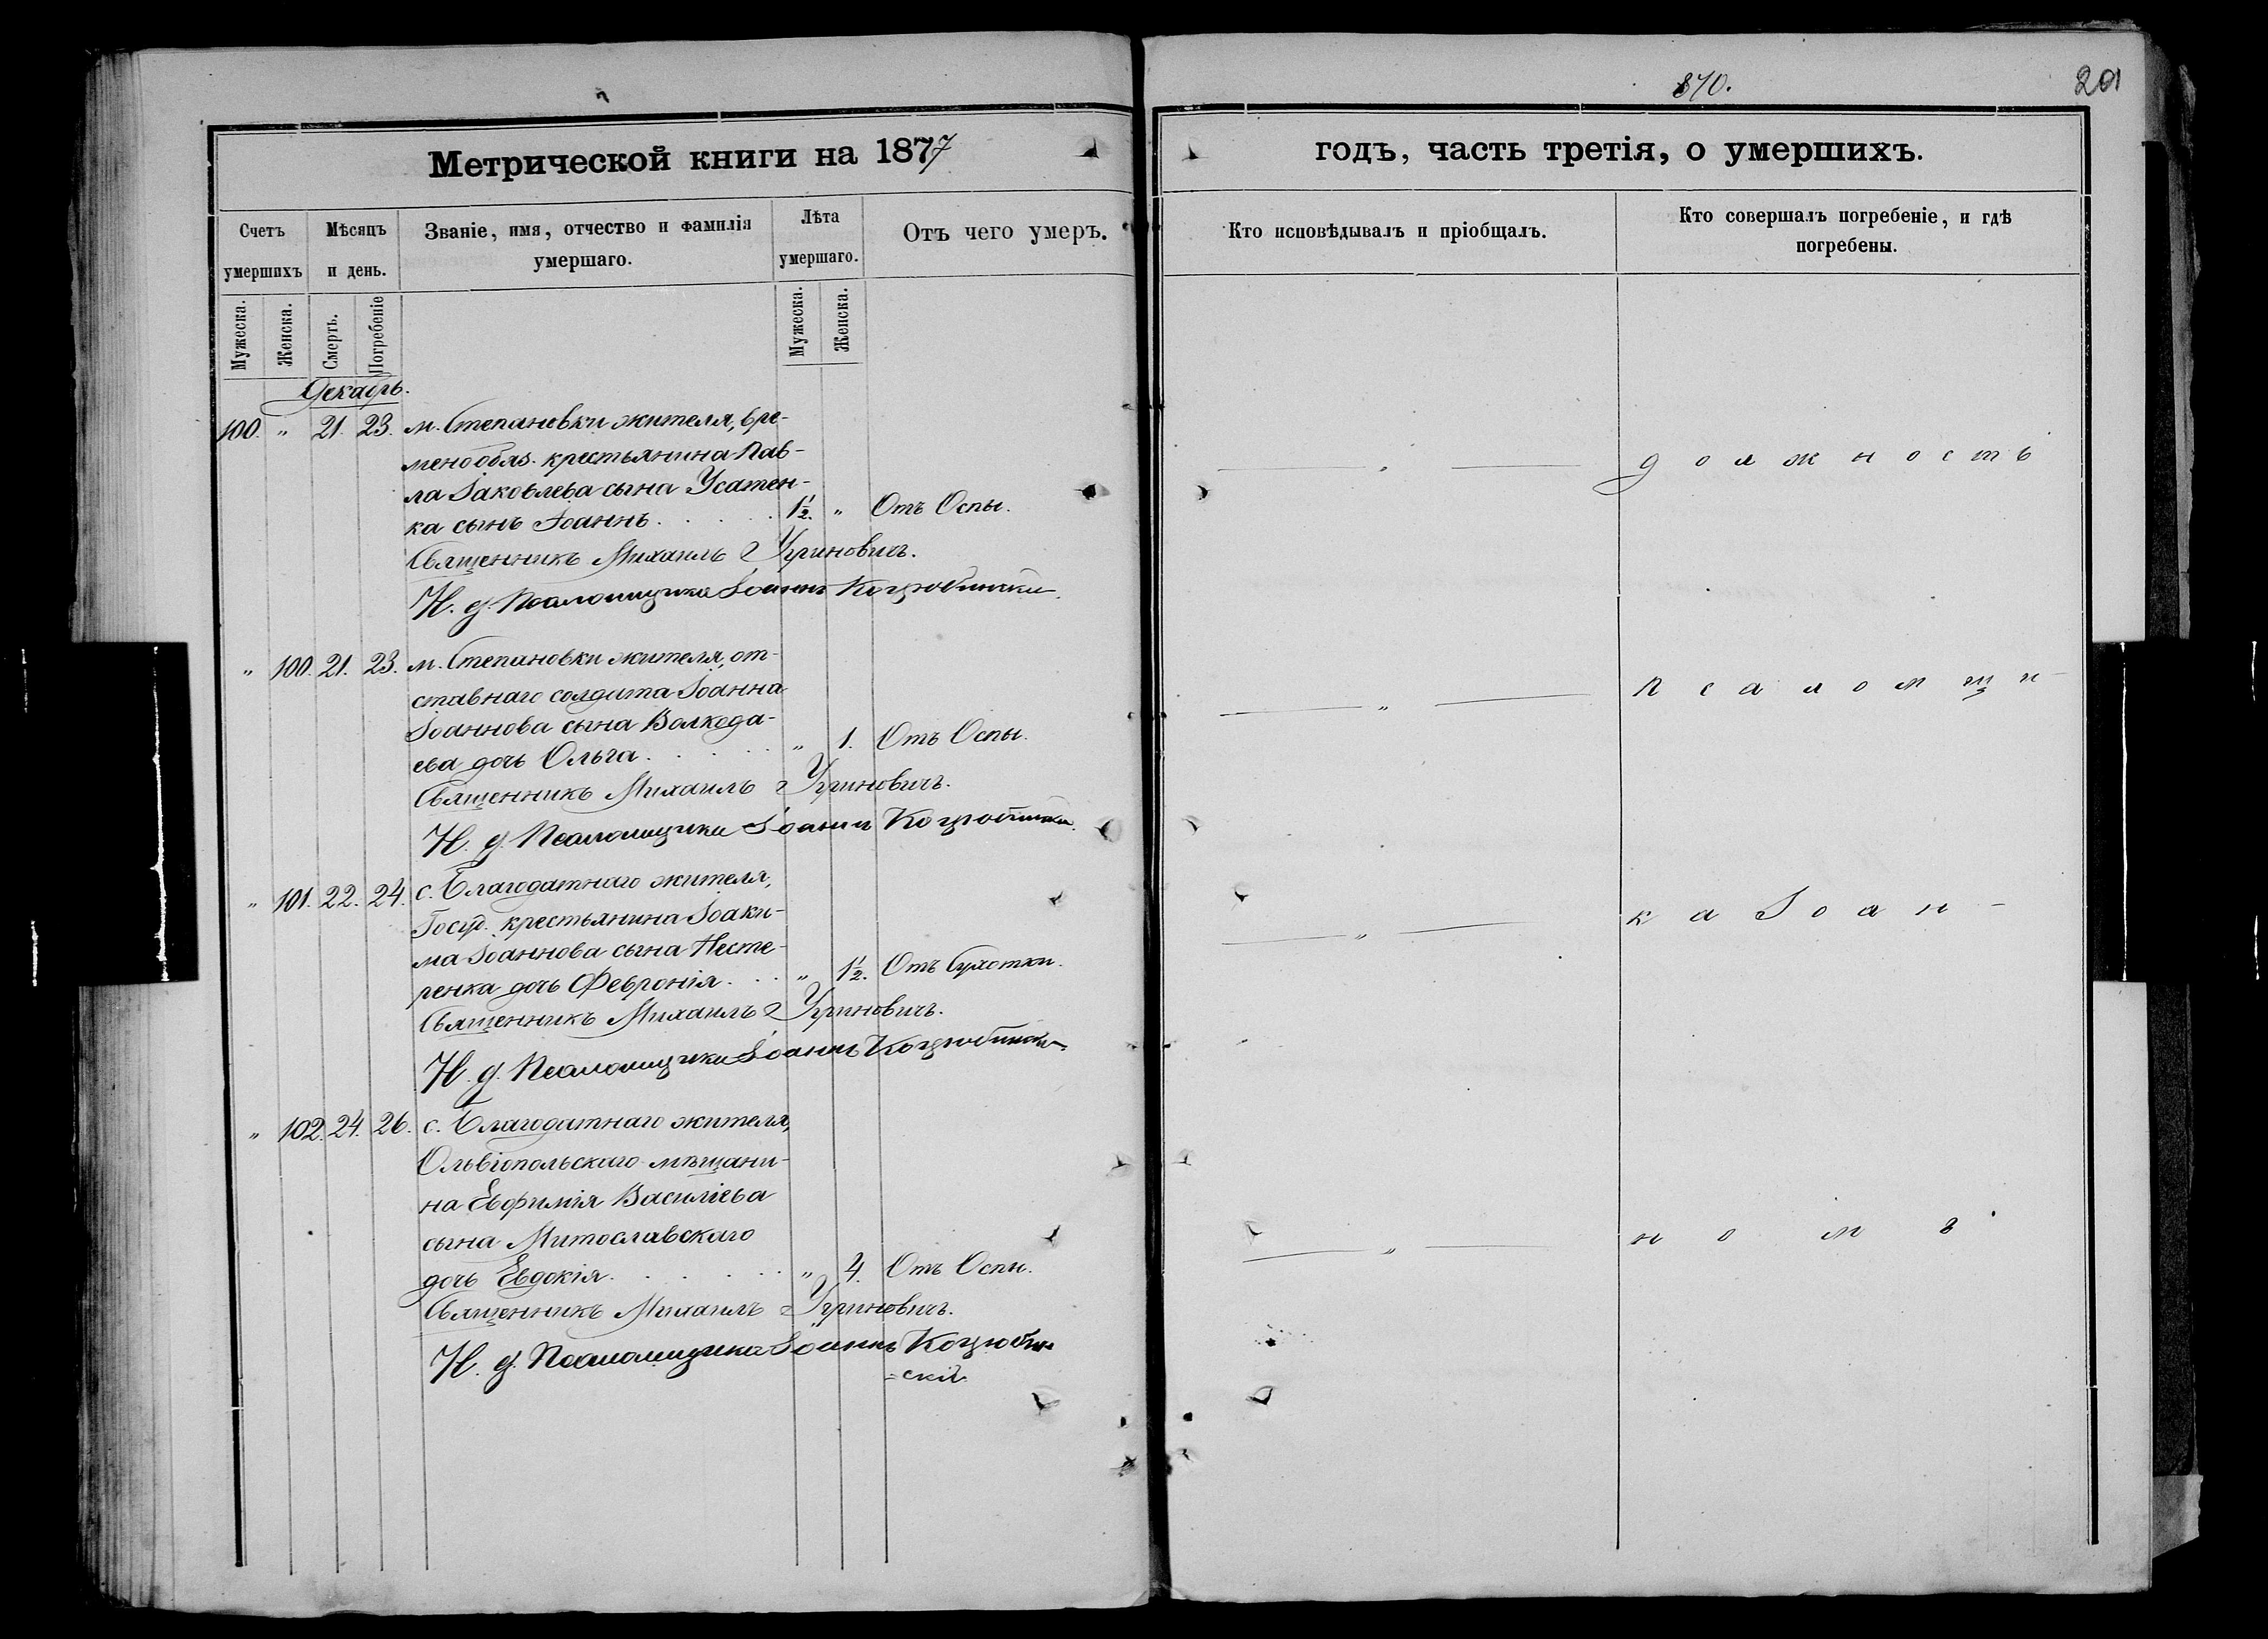 870.
201
Метрической книги на 1877
годъ, часть третія, о умершихъ.
Счетъ умершихъ
Мѣсяцъ и день.
Званіе, имя, отчество и фамилія умершаго.
Лѣта умершаго.
Отъ чего умеръ.
Кто исповѣдывалъ и пріобщалъ.
Кто совершалъ погребеніе, и гдѣ погребены.
Мужеска.
Женска.
Смерть.
Погребеніе
Мужеска.
Женска.
Декабрь.
100. " 21. 23. м. Степановки жителя, вре-
менообяз. крестьянина Пав-
ла Іаковлева сына Усатен-
ка сынъ Іоаннъ. . . . . 1½. " Отъ Оспы.
Священникъ Михаилъ Угриновичъ.
И. д. Псаломщика Іоаннъ Коцюбинскій
" — должность
" 100. 21. 23. м. Степановки жителя, от-
ставнаго солдата Іоанна
Іоаннова сына Волкода-
ева дочь Ольга. . . . . " 1. Отъ Оспы.
Священникъ Михаилъ Угриновичъ.
И. д. Псаломщика Іоаннъ Коцюбинскій
" — псаломщи-
" 101. 22. 24. с. Благодатнаго жителя,
Госуд. крестьянина Іоаки-
ма Іоаннова сына Несте-
ренка дочь Февронія. . . " 1½. Отъ Сухотки.
Священникъ Михаилъ Угриновичъ.
И. д. Псаломщика Іоаннъ Коцюбинскій
" — ка Іоан-
" 102. 24. 26. с. Благодатнаго жителя,
Ольвіопольскаго мѣщани-
на Евфимія Василіева
сына Митославскаго
дочь Евдокія. . . . . . " 4. Отъ Оспы.
Священникъ Михаилъ Угриновичъ.
И. д. Псаломщика Іоаннъ Коцюбин
=скій
" — номъ